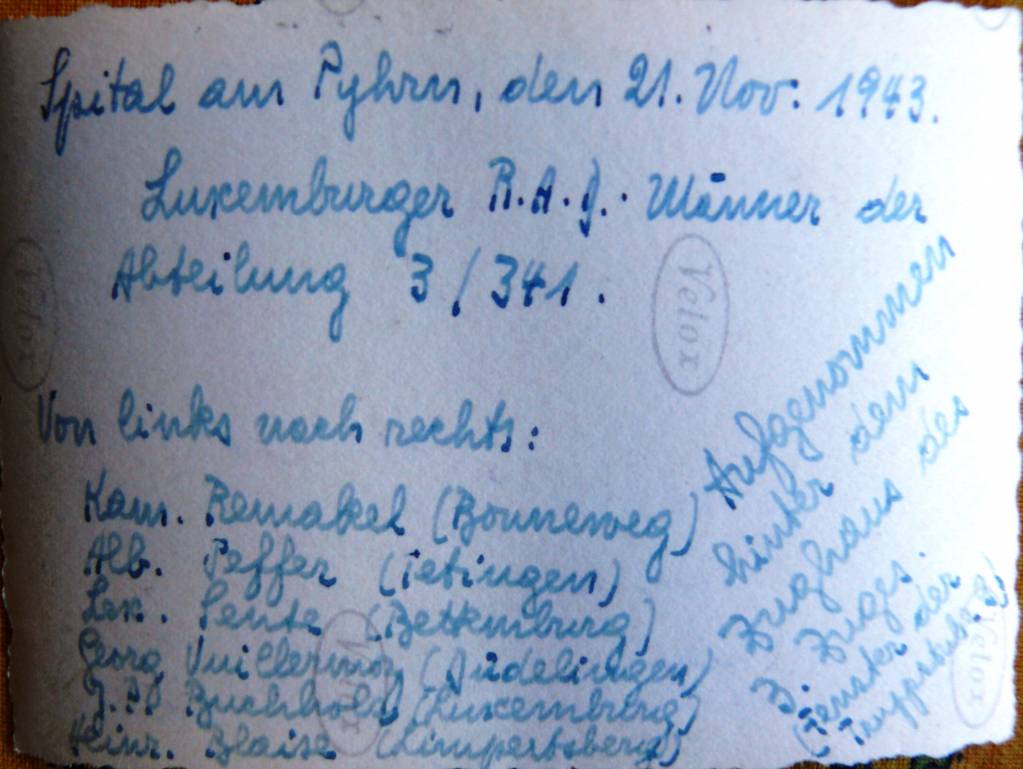 Spital am Pyhrn, den 21. Nov. 1943.
Luxemburger R.A.D. Männer der
Abteilung 3/341.
Von links nach rechts:
Kam. Remakel (Bonneweg)
Alb. Peffer (Tetingen)
Lex. Sente (Bettemburg)
Georg Vuillermoz (Düdelingen)
J.P. Buchholz (Luxemburg)
Heinr. Blaise (Limpertsberg)
Aufgenommen
hinter dem
Zughaus des
3. Zuges.
(Fenster der
Truppstube 8)
Velox
Velox
Velox
Velox